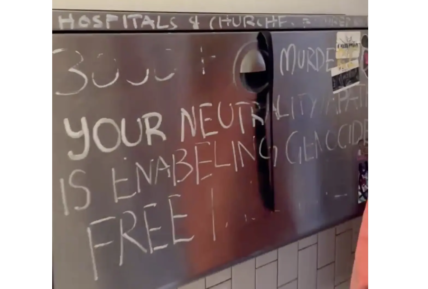 HOSPITALS & CHURCHE
300 + MURDE
YOUR NEUTRALITY
IS ENABELING GENOCIDE
FREE